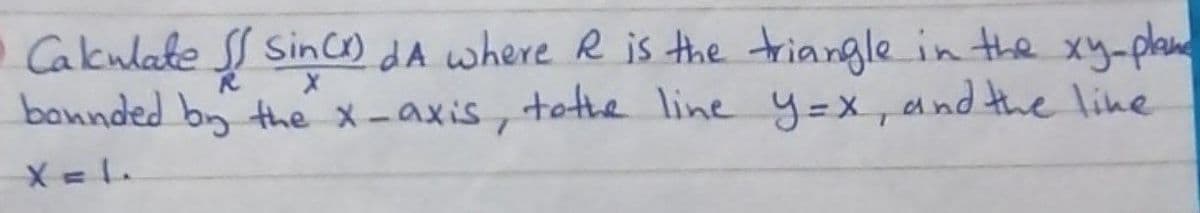 Calculate ∬ sin(x) dA where R is the triangle in the xy-plane
R x
bounded by the x-axis, tothe line y=x, and the line
x = 1.